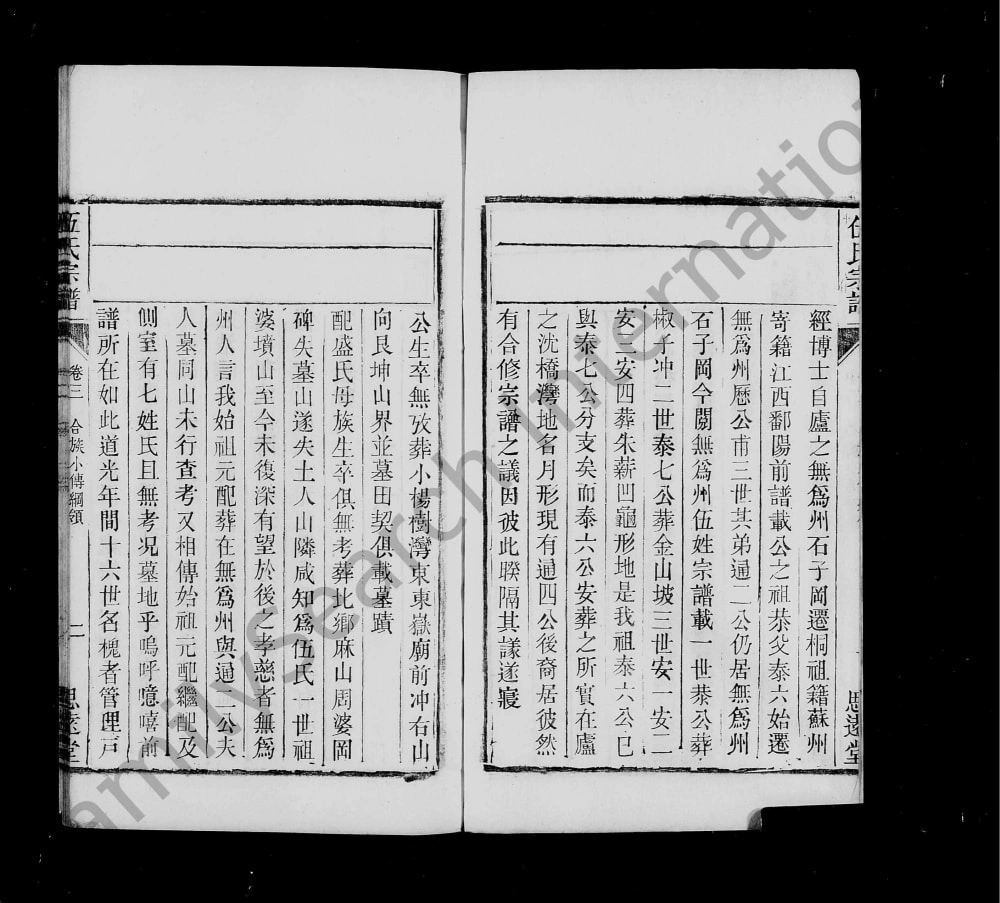 經博士自廬之無爲州石子岡遷桐祖籍蘇州
寄籍江西鄱陽前譜載公之祖恭父泰六始遷
無爲州歷公甫三世其弟通二公仍居無爲州
石子岡今閱無爲州伍姓宗譜載一世恭公葬
椒子冲二世泰七公葬金山坡三世安一安二
安三安四葬朱薪凹龜形地是我祖泰六公已
與泰七公分支矣而泰六公安葬之所實在廬
之沈橋灣地名月形現有通四公後裔居彼然
有合修宗譜之議因彼此暌隔其議遂寢
伍氏宗譜
思遠堂
公生卒無攷葬小楊樹灣東東嶽廟前冲右山
向艮坤山界並墓田契俱載墓蹟
配盛氏母族生卒俱無考葬北鄉麻山周婆岡
碑失墓山遂失土人山隣咸知爲伍氏一世祖
婆墳山至今未復深有望於後之孝慈者無爲
州人言我始祖元配葬在無爲州與通二公夫
人墓同山未行查考又相傳始祖元配繼配及
側室有七姓氏且無考况墓地乎嗚呼噫嘻前
譜所在如此道光年間十六世名槐者管理戸
伍氏宗譜
卷三
合族小傳綱領
二
思遠堂